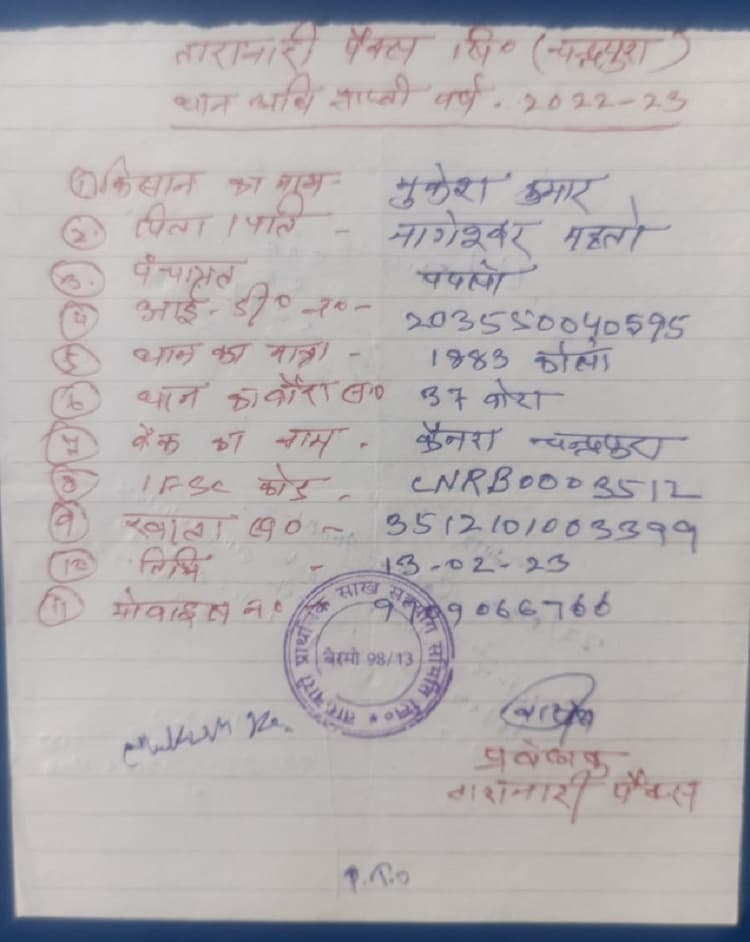 तारानारी पैक्स लि० (चन्द्रपुरा)
धान अधि प्राप्ती वर्ष. 2022-23
① किसान का नाम - मुकेश कुमार
② पिता / पति - नागेश्वर महतो
③ पंचायत पपलो
④ आई. डी० न० - 203550040595
⑤ धान का मात्रा - 1883 केोजी
⑥ धान का बोरा स० 37 बोरा
⑦ बैंक का नाम . कैनरा चन्द्रपुरा
⑧ IFSC कोड . CNRB0003512
⑨ खाता स० - 3512101003399
⑩ तिथि - 13-02-23
⑪ मोबाइल न० 9066766
तारानारी प्राथमिक साख सहयोग समिति लि०
बेरमो 98/13
Mukesh Kr.
प्रबंधक
तारानारी पैक्स
P.T.O